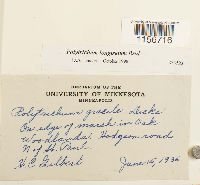 156718
Polytrichum longisetum
HERBARIUM OF THE
UNIVERSITY OF MINNESOTA
MINNEAPOLIS
Polytrichum gracile Dicks
On edge of marsh in Oak
Woodlands. Hodgson road
N of St. Paul
H.C. Gilbert June 15, 1936